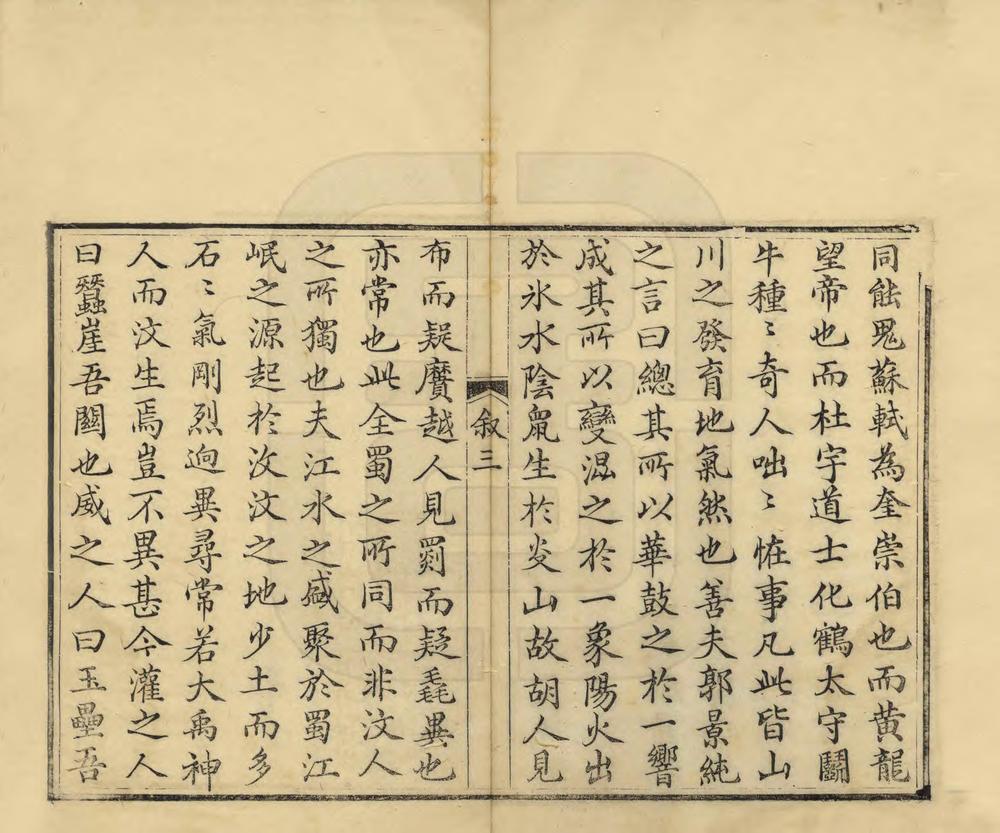 同能鬼蘇軾為奎崇伯也而黄龍
望帝也而杜宇道士化鶴太守鬬
牛種〻奇人咄〻恠事凡此皆山
川之發育地氣然也善夫郭景純
之言曰總其所以華鼓之於一響
成其所以變混之於一象陽火出
於氷水陰䑕生於炎山故胡人見
敘 三
布而疑黂越人見罽而疑毳異也
亦常也此全蜀之所同而非汶人
之所獨也夫江水之盛聚於蜀江
岷之源起於汶汶之地少土而多
石〻氣剛烈逈異尋常若大禹神
人而汶生焉豈不異甚今灌之人
曰蠶崖吾關也威之人曰玉壘吾